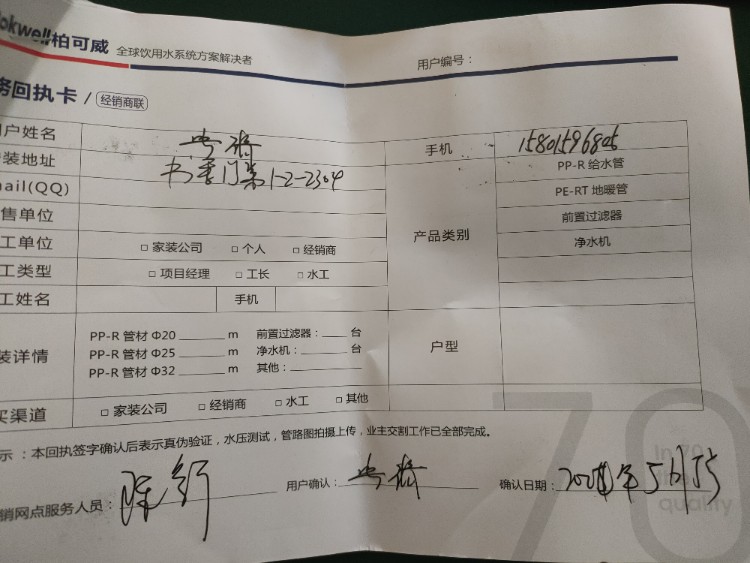 okwell柏可威 全球饮用水系统方案解决者 用户编号：
务回执卡 / 经销商联
户姓名 手机 15801596806
装地址 书香门第1-2-2304 PP-R 给水管
ail(QQ) PE-RT 地暖管
售单位 前置过滤器
工单位 □ 家装公司 □ 个人 □ 经销商 产品类别 净水机
工类型 □ 项目经理 □ 工长 □ 水工
工姓名 手机
装详情 户型
PP-R 管材 Φ20 m 前置过滤器： 台
PP-R 管材 Φ25 m 净水机： 台
PP-R 管材 Φ32 m 其他：
买渠道 □ 家装公司 □ 经销商 □ 水工 □ 其他
示：本回执签字确认后表示真伪验证，水压测试，管路图拍摄上传，业主交割工作已全部完成。
销网点服务人员： 用户确认： 确认日期：
70
In 70
quality